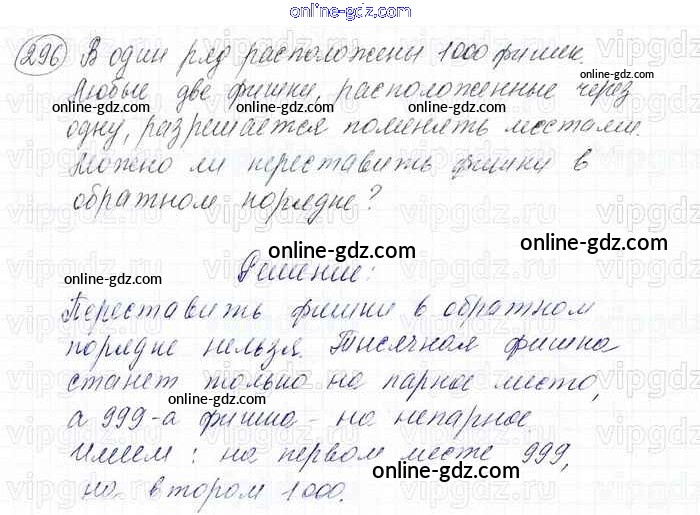 online-gdz.com
296 В один ряд расположены 1000 фишек.
Любые две фишки, расположенные через
одну, разрешается поменять местами.
Можно ли переставить фишки в
обратном порядке?
Решение:
Переставить фишки в обратном
порядке нельзя. Тысячная фишка
станет только на парное место,
а 999-а фишка - на непарное.
Имеем: на первом месте 999,
на втором 1000.
online-gdz.com
online-gdz.com
online-gdz.com
online-gdz.com
online-gdz.com
online-gdz.com
online-gdz.com
online-gdz.com
online-gdz.com
online-gdz.com
online-gdz.com